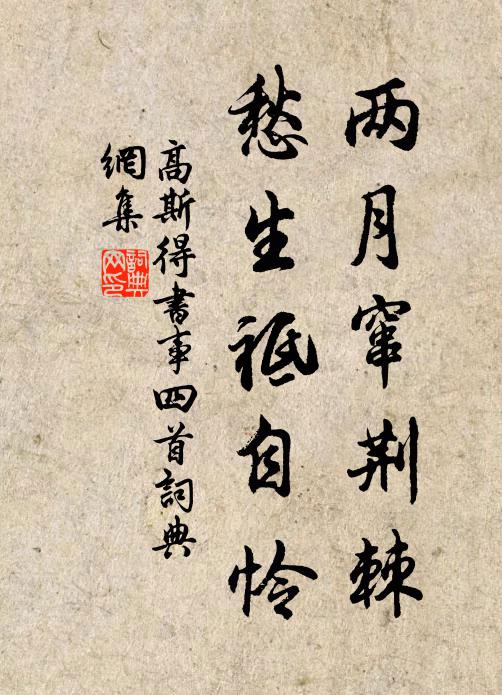 两月窜荆棘
愁生祗自怜
高斯得书事四首词典
網集
詞典網印